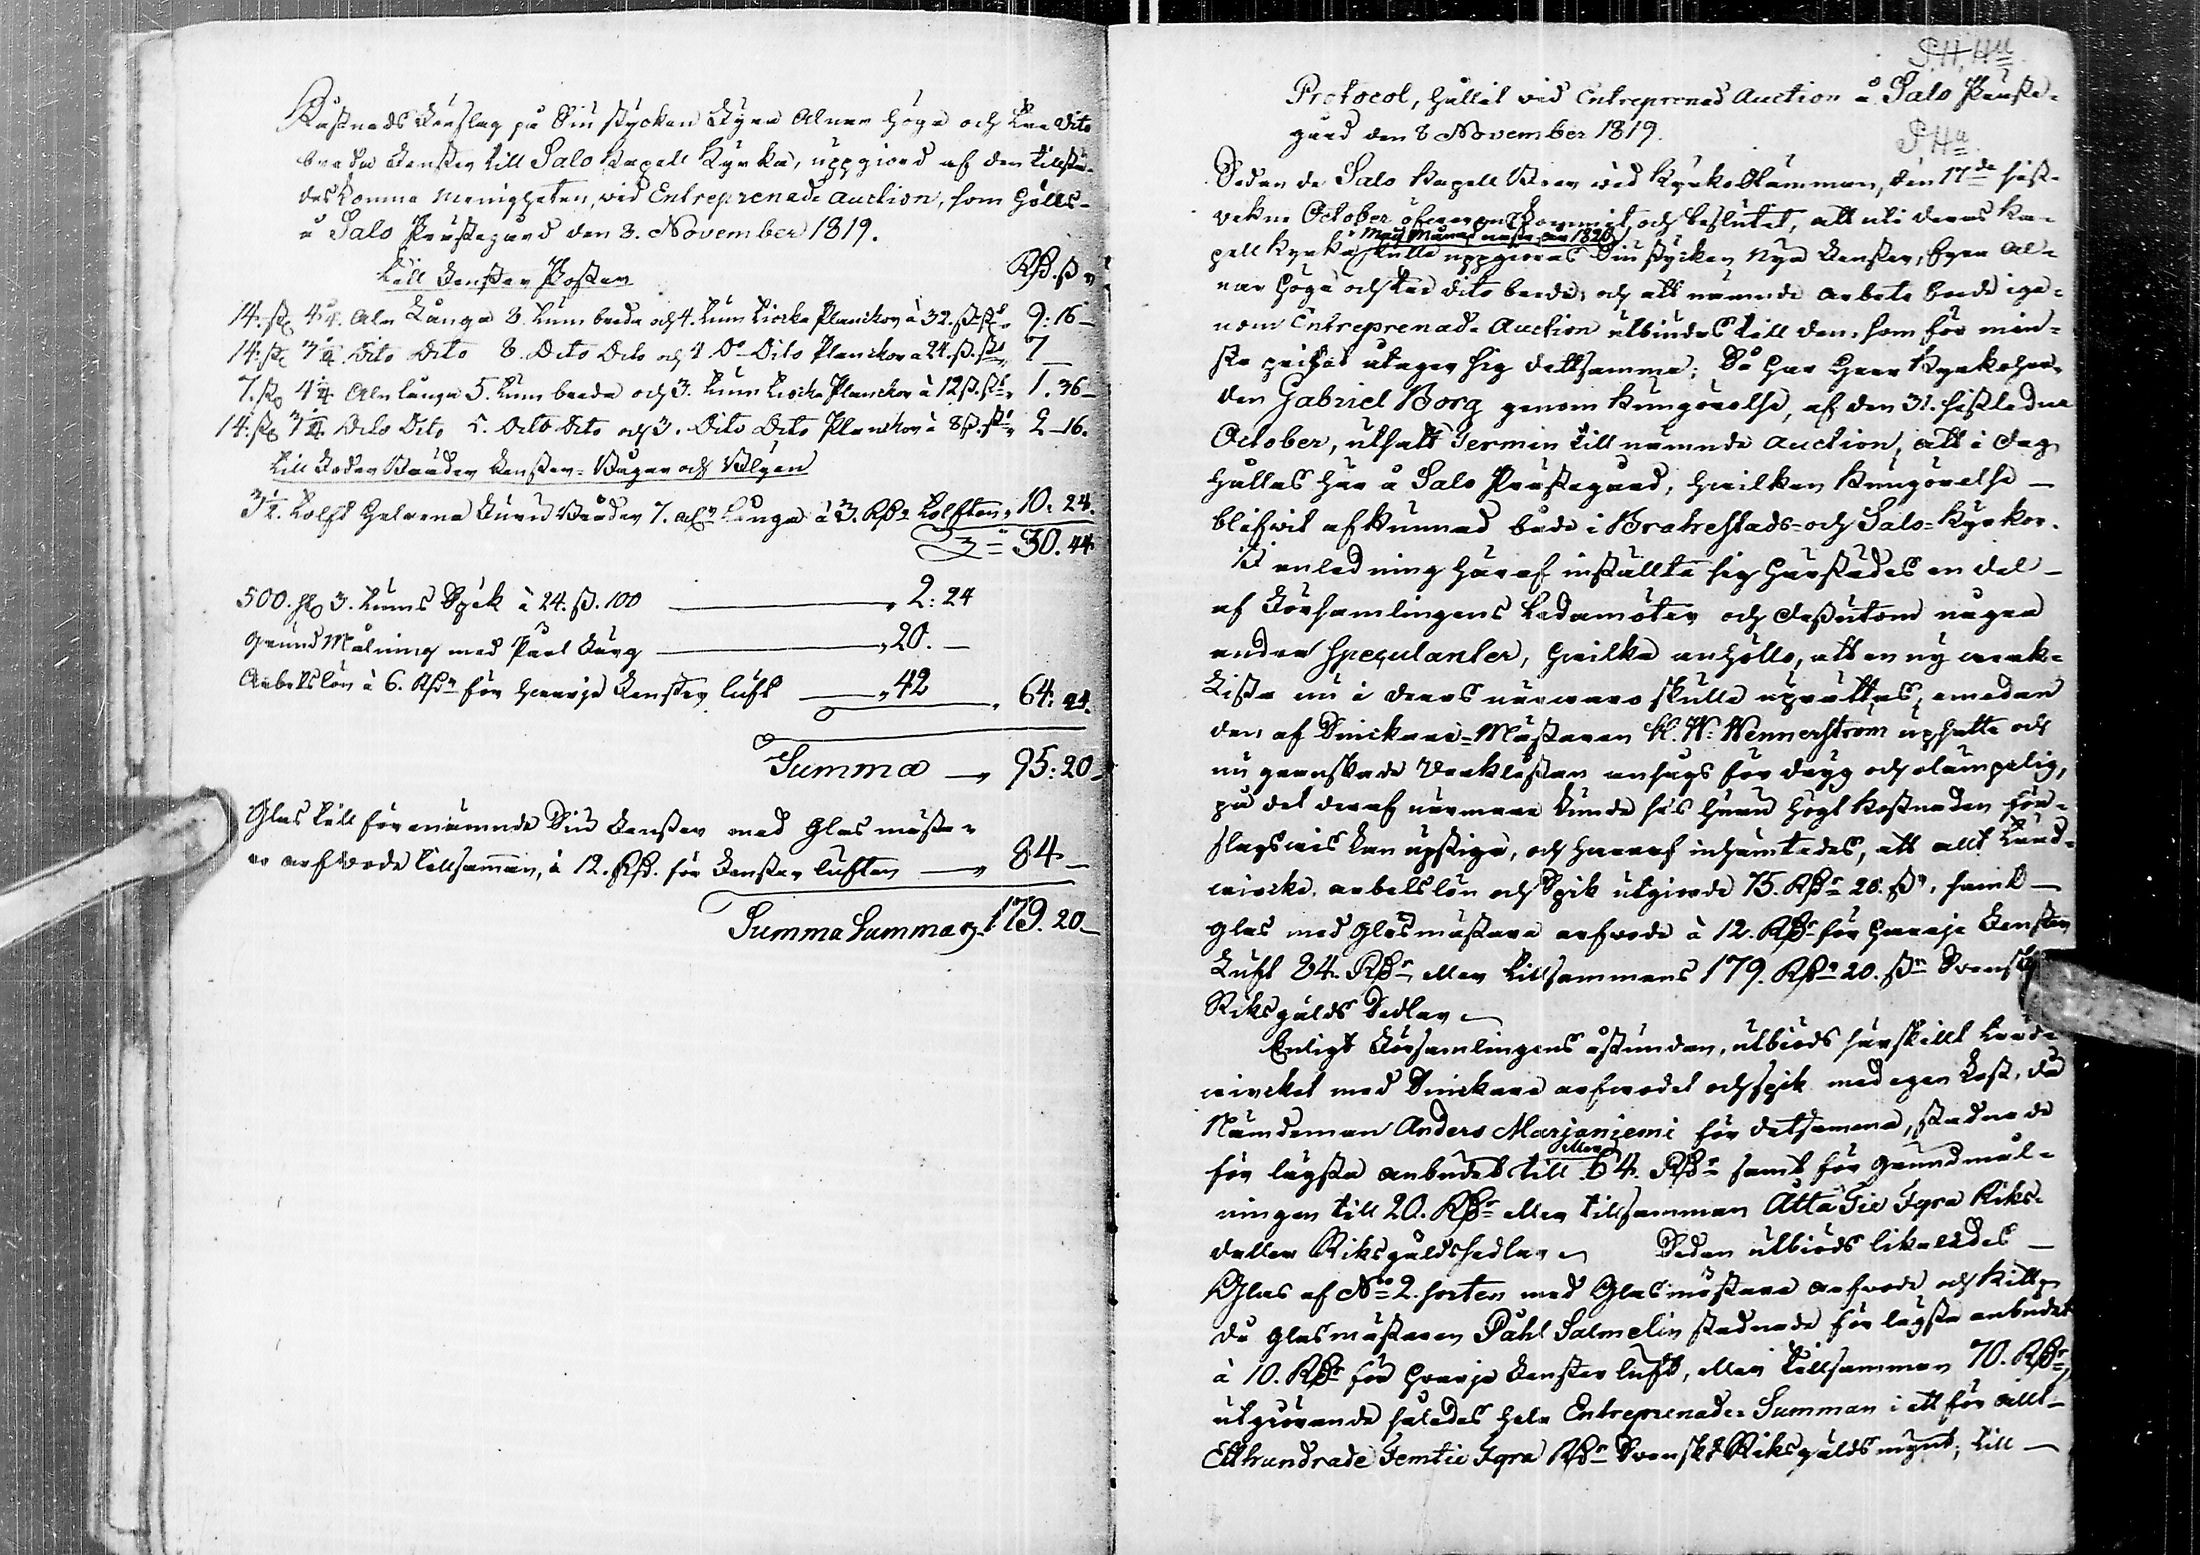 Kåstnads Förslag på Siu stycken Fyra Alnar höga och Tre dito
breda Fenster till Salo Kapell Kyrka, uppgiord af den tillstä-
deskomne Menigheten, vid Entreprenade Auction, som hölls
å Salo Prästegård den 8. November 1819.
Till Fenster Poster
RD. ß r
14. st. 4 1/4. Aln Långa 8. tum breda och 4. tum tiocka Planckor à 32. ß st. 9: 16 —
14: st. 3 1/4. Dito Dito 8. Dito Dito och 4 Do Dito Planckor à 24. ß. st. 7 —
7. st. 4 1/4 Aln långa 5. tum breda och 3. tum tiocka Planckor à 12 ß. st. 1. 36 —
14. st. 3 1/4. Dito Dito 5. Dito Dito och 3. Dito Dito Planckor à 8 ß. st. 2 — 16.
till Foder Bräder Fenster-Bågar och
3 1/2. Tolft Furu Bräder 7. aln Långa à 3. RDr Tolften 10. 24.
30. 44
500. st. 3. tums Spik à 24. ß. 100 — 2: 24
Grund Målning med Pärl Färg — 20. —
Arbetslön à 6. RDr för hvarje Fenster luft — 42
64: 24.
Summa — 95: 20
Glas till förenämnde Siu Fenster med Glas mästa-
re arfvode tillsamman, à 12. RD. för Fenster luften — 84 —
Summa Summarum 179. 20 —
P.H. Ha
Protocol, hållit vid Entreprenad Auction å Salo Präste-
gård den 8 November 1819.
P Ha
Sedan de Salo Kapell Boer vid Kyrko Stämman, den 17de sist-
vekne October öfverens kommit, och beslutet, att uti deras Ka-
Maij Månad nästa år 1820
pell Kyrka skulle uppgiöras Siu stycken Nya Fenster, fyra Al-
nar höga och tre dito breda; och att nämnde arbete borde ige-
nom Entreprenade Auction utbiudas till den, som för min-
sta priset åtager sig dettsamma; Så har Herr Kyrkoher-
den Gabriel Borg genom Kungörelse, af den 31. sistledne
October, utsatt Termin till nämnde Auction, att i dag
hållas här å Salo Prästegård, hvilken Kungörelse —
blifvit afkunnad både i Brahestads- och Salo-Kyrkor.
I anledning häraf inställte sig härstädes en del —
af Församlingens Ledamöter och dessutom någre
andre Spequlanter, hvilka anhöllo, att en ny verk-
lista nu i deras närvaro skulle uprättas, emedan
den af Snickare-Mästaren K. W: Wennerström upsatte och
nu granskade Verklistan ansågs för dryg och olämpelig,
på det deraf närmare kunde ses huru högt Kostnaden för-
slagsvis kan upstiga, och hvaraf inhämtades, att allt träd-
wircke, arbetslön och Spik utgiorde 75. RDr 20. ßr, samt —
glas med Glasmästare arfvode à 12. RDr för hvarje Fenster
Luft 84. RDr eller tillsammans 179. RDr 20. ßr Svenska
Riksgälds Sedlar.
Enligt Församlingens åstundan, utbiöds särskillt träd-
wircket med Snickare arfvodet och spik med egen kost, då
Nämdeman Anders Marjaniemi för detsamma, stadnade
för lägsta anbudet till 64. RDr samt för grundmål-
ningen till 20. RDr eller tillsamman Åtta Tie Fyra Riks-
daller Riksgäldssedlar. Sedan utbiöds likaledes —
Glas af No 2. sorten med Glasmästare arfvode och Kitt,
då Glasmästaren Påhl Salmelin stadnade för lägsta anbudet
à 10. RDr för hvarje Fenster luft, eller tillsamman 70. RDr,
utgiörande således hela Entreprenade-Summan i ett för allt
Etthundrade Femtie Fyra RDr Svenskt Riksgälds mynt, till —